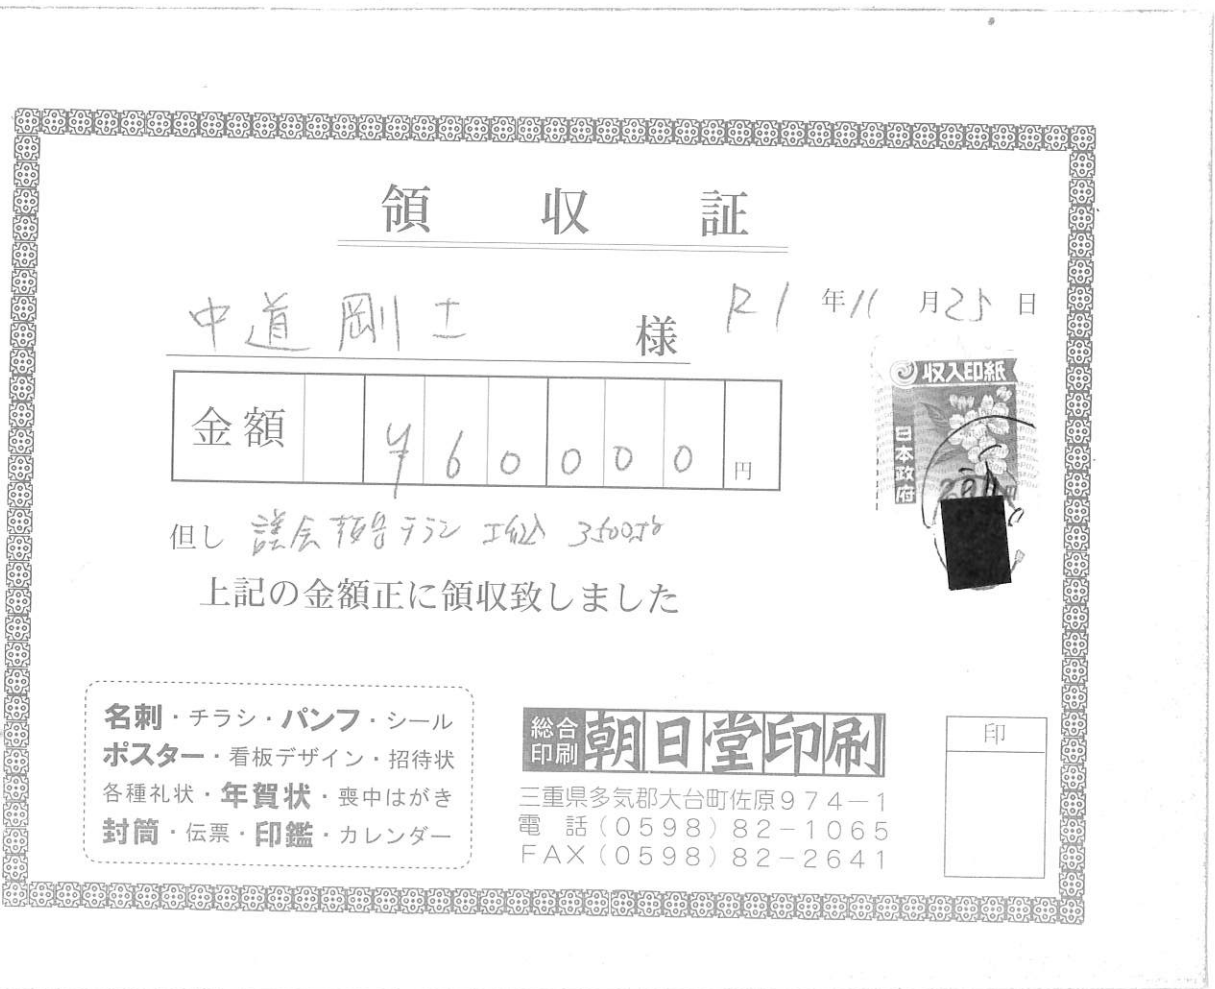 領 収 証
中道 剛士 様
R1年11月25日
金額 ¥60000円
収入印紙
日本政府
200円
但し 議会報告チラシ 折込 3500部
上記の金額正に領収致しました
名刺・チラシ・パンフ・シール
ポスター・看板デザイン・招待状
各種礼状・年賀状・喪中はがき
封筒・伝票・印鑑・カレンダー
総合印刷 朝日堂印刷
三重県多気郡大台町佐原974-1
電 話(0598)82-1065
FAX(0598)82-2641
印